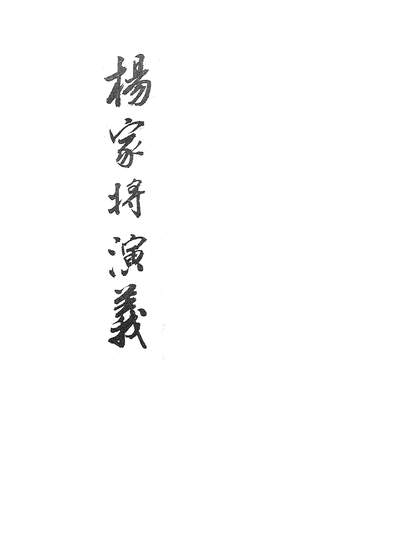 楊家将演義